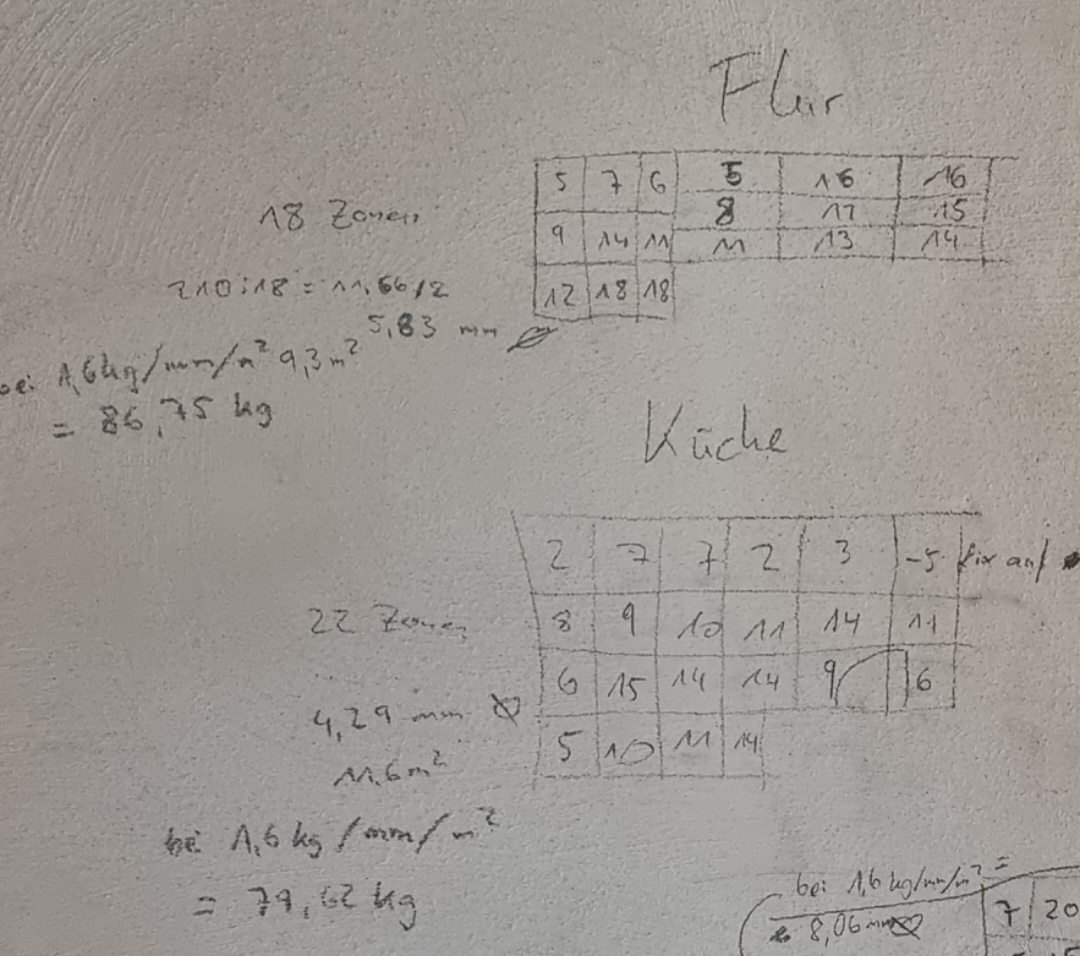 Flur
5 7 6 5 16 16
8 17 15
18 Zonen
9 14 11 11 13 14
210:18 = 11,66/2
12 18 18
5,83 mm ⌀
bei 1,6kg/mm/m² 9,3m²
= 86,75 kg
Küche
2 7 7 2 3 -5 fix auf
22 Zonen
8 9 10 11 14 11
6 15 14 14 9 6
4,29 mm ⌀
5 10 11 14
11,6m²
bei 1,6 kg/mm/m²
= 79,62 kg
bei 1,6 kg/mm/m² =
8,06 mm ⌀
7 20